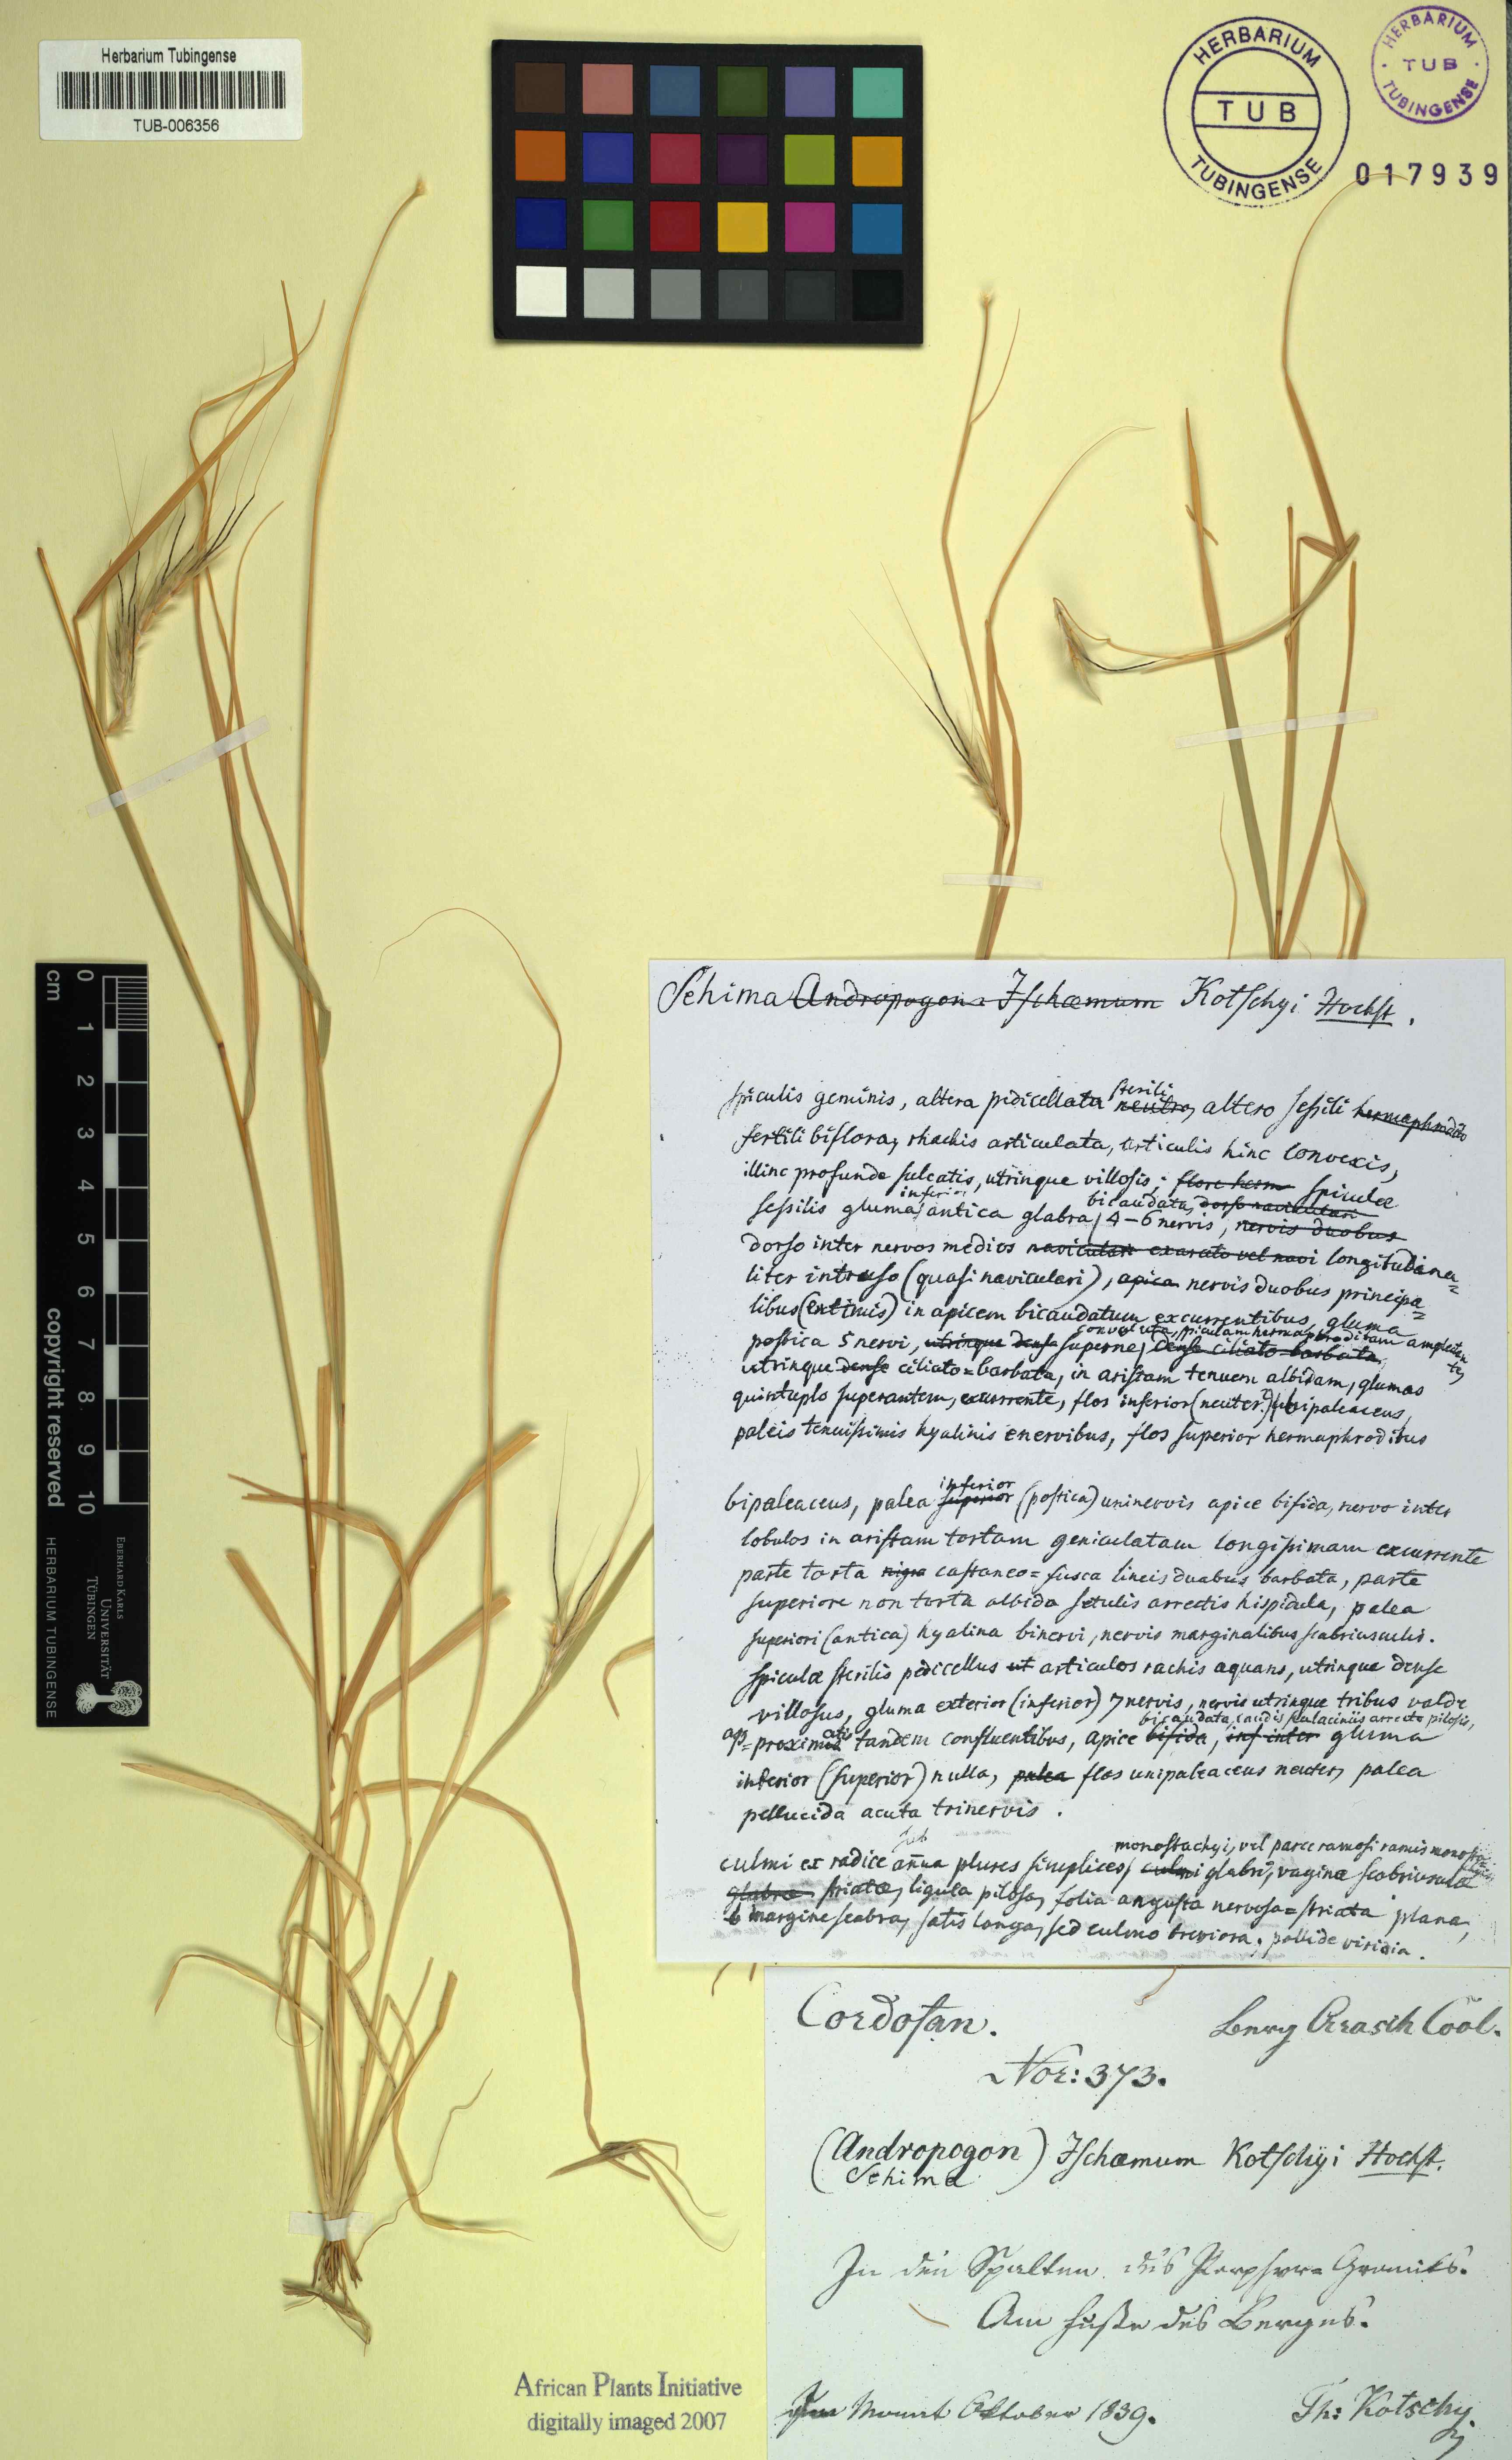 Herbarium Tubingense
TUB-006356
HERBARIUM
TUB
TUBINGENSE
HERBARIUM
TUB
TUBINGENSE
017939
cm 0 1 2 3 4 5 6 7 8 9 10
copyright reserved
HERBARIUM TUBINGENSE
EBERHARD KARLS
UNIVERSITÄT
TÜBINGEN
Sehima Andropogon Ischaemum Kotschyi Hochst.
spiculis geminis, altera pidicellata sterili neutro, altero sessili hermaphrodito
fertili biflora, rhachis articulata, articulis hinc convexis,
illinc profunde sulcatis, utrinque villosis; flore herm spiculae
inferior bicaudata, dorso naviculari
sessilis gluma antica glabra, 4-6 nervis, nervis duobus
dorso inter nervos medios naviculari exarato vel navi longitudina=
liter intruso (quasi naviculari), apice nervis duobus principa=
libus (extimis) in apicem bicaudatum excurrentibus, gluma
convoluta, spiculam hermaphroditam amplectente,
postica 5 nervi, utrinque dense superne, dense ciliato barbata,
utrinque dense ciliato=barbata, in aristam tenuem albidam, glumas
quintuplo superantem, excurrente, flos inferior (neuter?) bipaleaceus,
paleis tenuissimis hyalinis enervibus, flos superior hermaphroditus
bipaleaceus, palea inferior superior (postica) uninervis apice bifida, nervo inter
lobulos in aristam tortam geniculatam longissimam excurrente
parte torta nigra castaneo=fusca lineis duabus barbata, parte
superiore non torta albida setulis arrectis hispidula, palea
superiori (antica) hyalina binervi, nervis marginalibus scabriusculis.
Spiculae sterilis pedicellus ut articulos rachis aquans, utrinque dense
villosus, gluma exterior (inferior) 7 nervis, nervis utrinque tribus valde
bicaudata, caudis laciniis arrecto pilosis,
ap=proximatis tandem confluentibus, apice bifida, inf inter gluma
interior (superior) nulla, palea flos unipaleaceus neuter, palea
pellucida acuta trinervis.
monostachyi, vel parce ramosi ramis monosta=
culmi ex radice sub annua plures simplices, culmi glabri, vagina scabriuscula
glabrae striatae, ligula pilosa, folia angusta nervosa=striata plana,
margine scabra, satis longa, sed culmo breviora, pallide viridia.
Cordofan. Berg Arasch Cool.
Nor: 373.
(Andropogon) Ischaemum Kotschyi Hochst.
Sehima
In den Spalten des Porphyr=Granits.
Am Fuße des Berges.
Im Monat Oktober 1839. Th: Kotschy.
African Plants Initiative
digitally imaged 2007